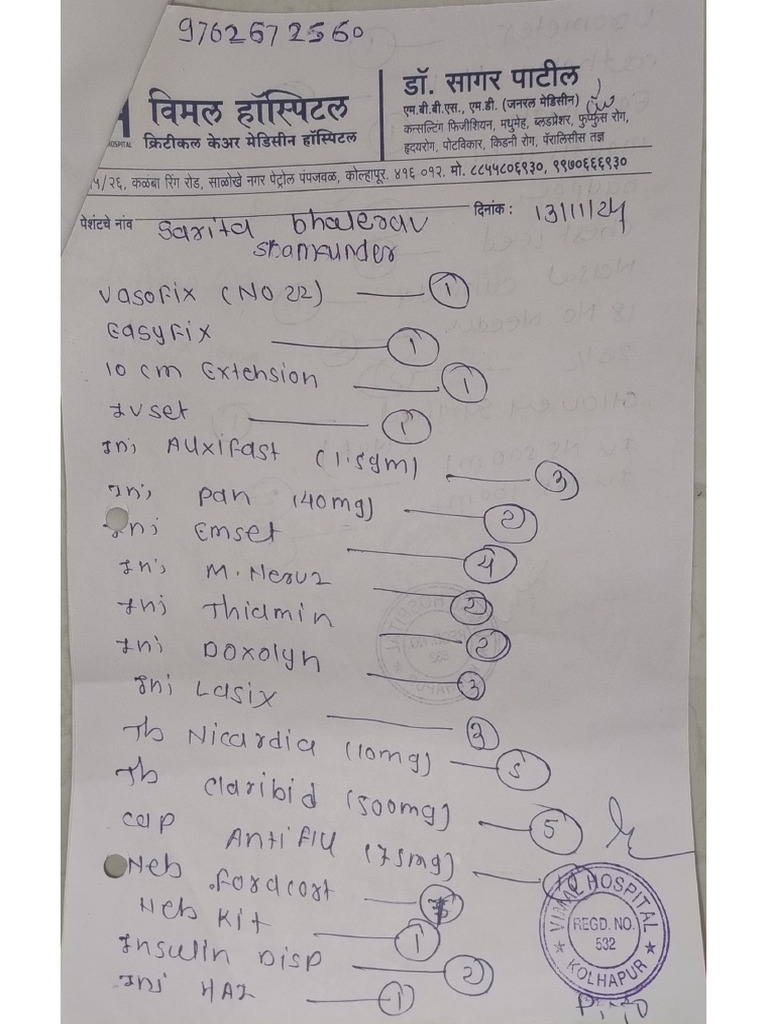 9762672560
विमल हॉस्पिटल
HOSPITAL
क्रिटीकल केअर मेडिसीन हॉस्पिटल
डॉ. सागर पाटील
एम.बी.बी.एस., एम.डी. (जनरल मेडिसीन)
कन्सल्टिंग फिजीशियन, मधुमेह, ब्लडप्रेशर, फुर्फ्फुस रोग,
हृदयरोग, पोटविकार, किडनी रोग, पॅरालिसीस तज्ञ
५/२६, कळंबा रिंग रोड, साळोखे नगर पेट्रोल पंपजवळ, कोल्हापूर. ४१६ ०१२. मो. ८८५५८०६९३०, ९९७०६६६९३०
पेशंटचे नांव Sarita bhalerav
दिनांक : 13/11/24
Vasofix (NO 22) — 1
Easyfix — 1
10 cm Extension — 1
IVset — 1
Inj Auxifast (1.5gm) — 3
Inj Pan (40mg) — 2
Inj Emset — 4
Inj M.Neruz — 2
Inj Thiamin — 2
Inj Doxolyn — 3
Inj Lasix — 3
Tb Nicardia (10mg) — 5
Tb Claribid (500mg) — 5
Cap Antiflu (75mg) — 10
Neb .foracort —
Neb Kit — 1
Insulin Disp — 2
Inj HAI — 1
VIMAL HOSPITAL
REGD. NO.
532
KOLHAPUR